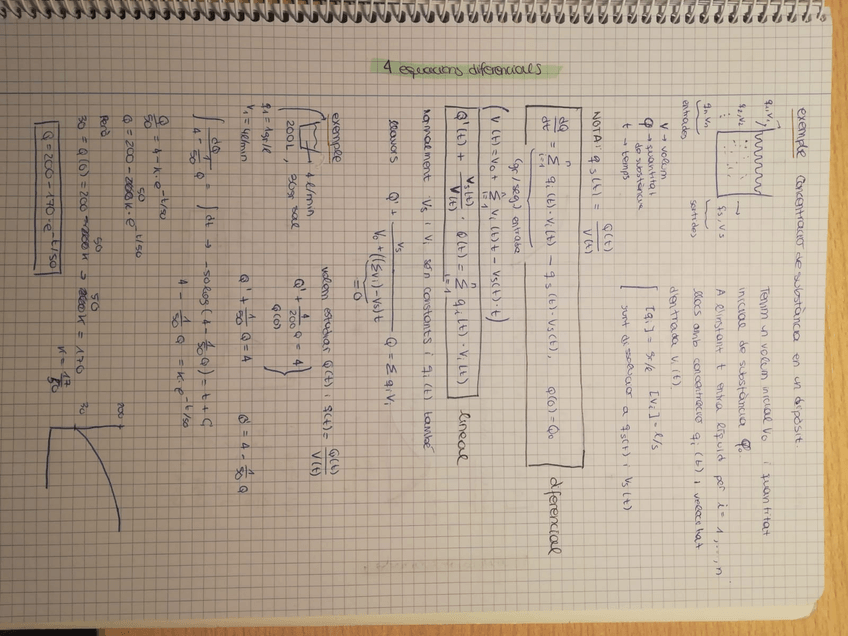 4 equacions diferencials
exemple Concentració de substància en un dipòsit.
q₁, v₁
q₂, v₂
qₙ vₙ
entrades
qs, vs
sortides
V → volum
Q → quantitat
de substància
t → temps
Tenim un volum inicial V₀ i quantitat
inicial de substància Q₀
A l'instant t entra líquid per i = 1, ..., n
llocs amb concentració qᵢ(t), velocitat
d'entrada vᵢ(t).
[qᵢ] = g/l [vᵢ] = l/s
surt dissolució a qs(t) i vs(t)
NOTA: qs(t) = Q(t)/V(t)
dQ/dt = Σ qᵢ(t)·vᵢ(t) − qs(t)·vs(t), Q(0) = Q₀ diferencial
(gr/seg) entrada
(V(t) = V₀ + Σ vᵢ(t)t − vs(t)·t)
Q'(t) + vs(t)/V(t) · Q(t) = Σ qᵢ(t)·vᵢ(t) lineal
Normalment vs i vᵢ són constants i qᵢ(t) també
llavors Q' + vs/(V₀ + ((Σvᵢ) − vs)t) Q = Σ qᵢvᵢ
= 0
exemple
200L, 30gr sal
4 l/min
q₁ = 1g/l
v₁ = 4l/min
volem estudiar Q(t) i q(t) = Q(t)/V(t)
Q' + 4/200 Q = 4
Q(0)
Q' + 1/50 Q = 4 Q' = 4 − 1/50 Q
∫ dQ/(4 − 1/50 Q) = ∫ dt → −50log(4 − 1/50 Q) = t + C
4 − 1/50 Q = k·e^(−t/50)
Q/50 = 4 − k·e^(−t/50)
Q = 200 − 50 k·e^(−t/50)
però
30 = Q(0) = 200 − 50 k → 50 k = 170
k = 17/5
Q = 200 − 170·e^(−t/50)
200
30